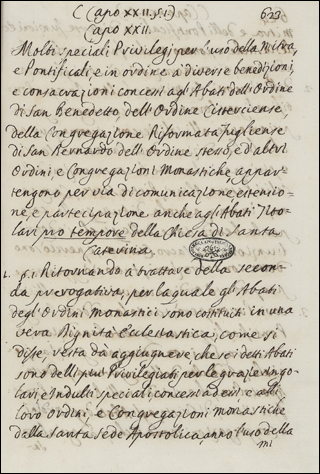 (Capo XXII. §. 1.) 623
Capo XXII.
Molti speciali Privilegi per l'uso della Mitra,
e Pontificali, e in ordine a diverse benedizioni,
e consacrazioni concessi agl'Abati dell'Ordine
di San Benedetto, dell'Ordine Cisterciense,
della Congregazione Riformata Fugliense
di San Bernardo dell'Ordine stesso, e d'altri
Ordini, e Congregazioni Monastiche, appar-
tengono per via di comunicazione, estensio-
ne, e partecipazione anche agli Abati Tito-
lari pro tempore della Chiesa di Santa
Caterina.
1. §. 1. Ritornando a trattare della secon-
da prerogativa, per la quale gl'Abati
degl'Ordini Monastici sono costituiti in una
vera Dignità Ecclesiastica, come si
disse, resta da aggiugnere, che se i detti Abati
sono delli più Privilegiati per le grazie singo-
lari, e Indulti speciali concessi ad essi, e alli
loro Ordini, e Congregazioni Monastiche
dalla Santa Sede Apostolica, anno l'uso della
mi